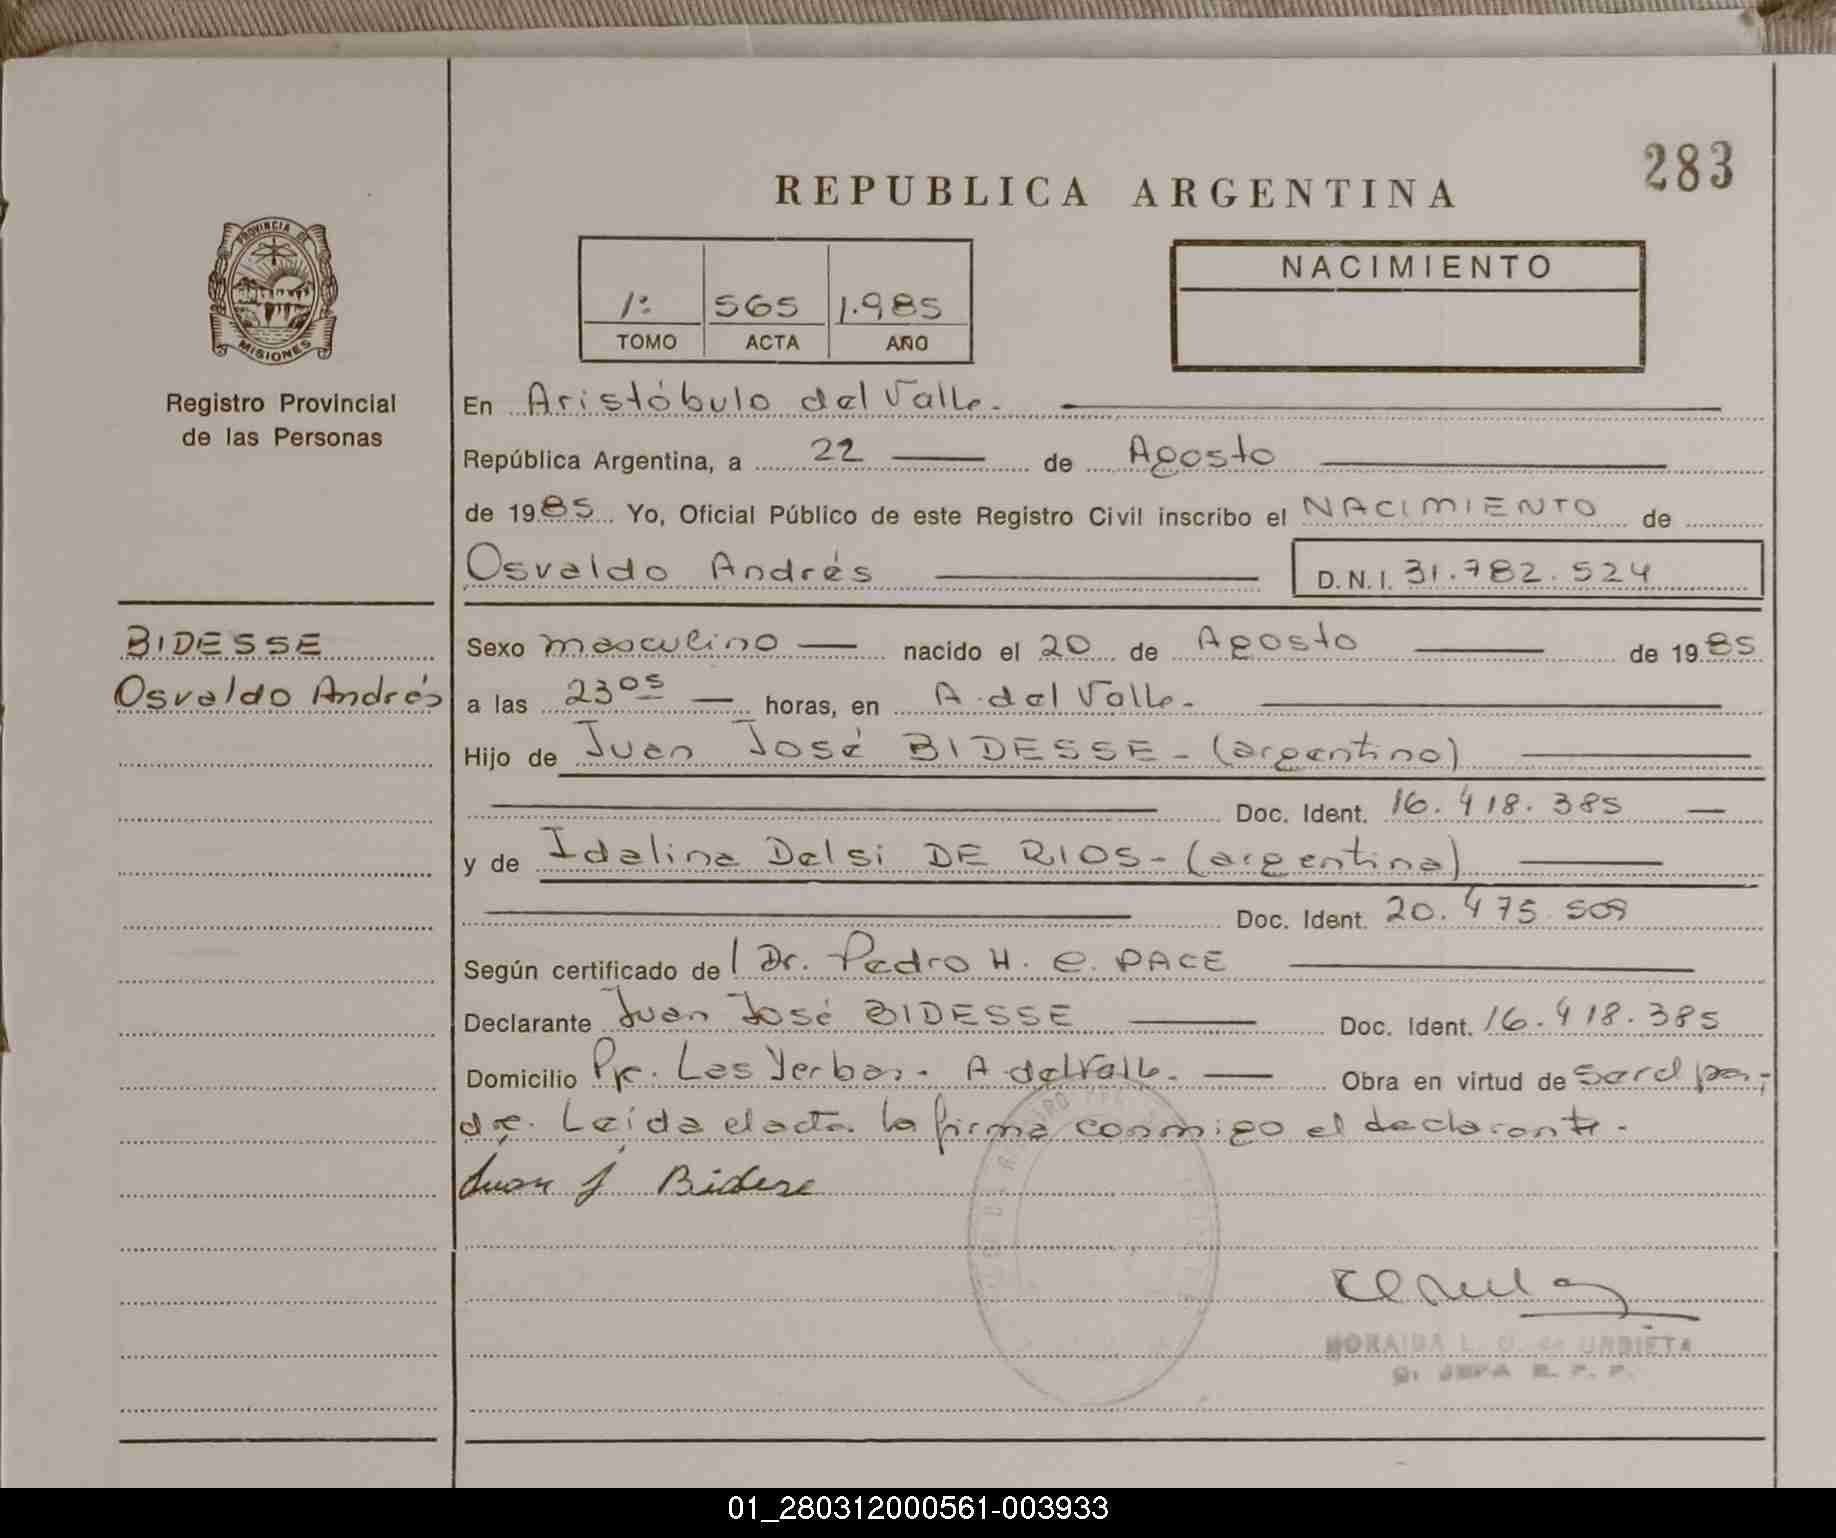 283
REPUBLICA ARGENTINA
PROVINCIA DE
MISIONES
Registro Provincial
de las Personas
1º 565 1.985
TOMO ACTA AÑO
NACIMIENTO
En Aristóbulo del Valle.
República Argentina, a 22 de Agosto
de 1985 Yo, Oficial Público de este Registro Civil inscribo el NACIMIENTO de
Osvaldo Andrés D.N.I. 31.782.524
BIDESSE
Osvaldo Andrés
Sexo masculino nacido el 20 de Agosto de 1985
a las 23 05 horas, en A. del Valle.
Hijo de Juan José BIDESSE - (argentino)
Doc. Ident. 16.418.385
y de Idalina Delsi DE RIOS - (argentina)
Doc. Ident. 20.475.509
Según certificado de Dr. Pedro H. C. PACE
Declarante Juan José BIDESSE Doc. Ident. 16.418.385
Domicilio Pje. Las Yerbas. A. del Valle. Obra en virtud de ser el pa-
dre. Leída el acta la firma conmigo el declarante.
Juan J Bidese
URBIETA
JEFA R. P. P.
01_280312000561-003933